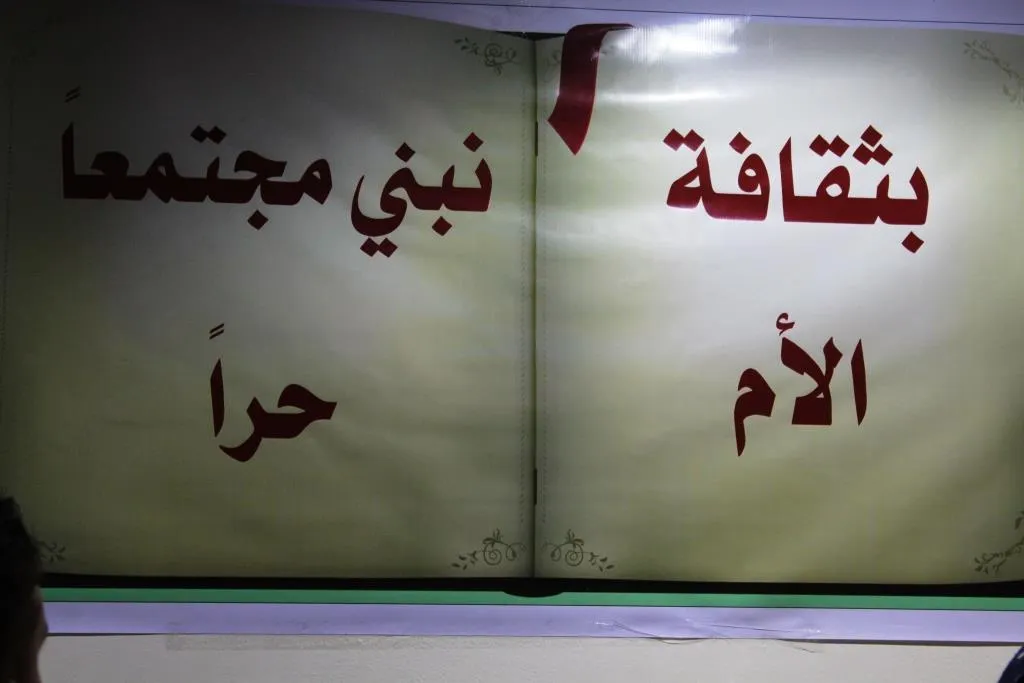 بثقافة
الأم
نبني مجتمعاً
حراً